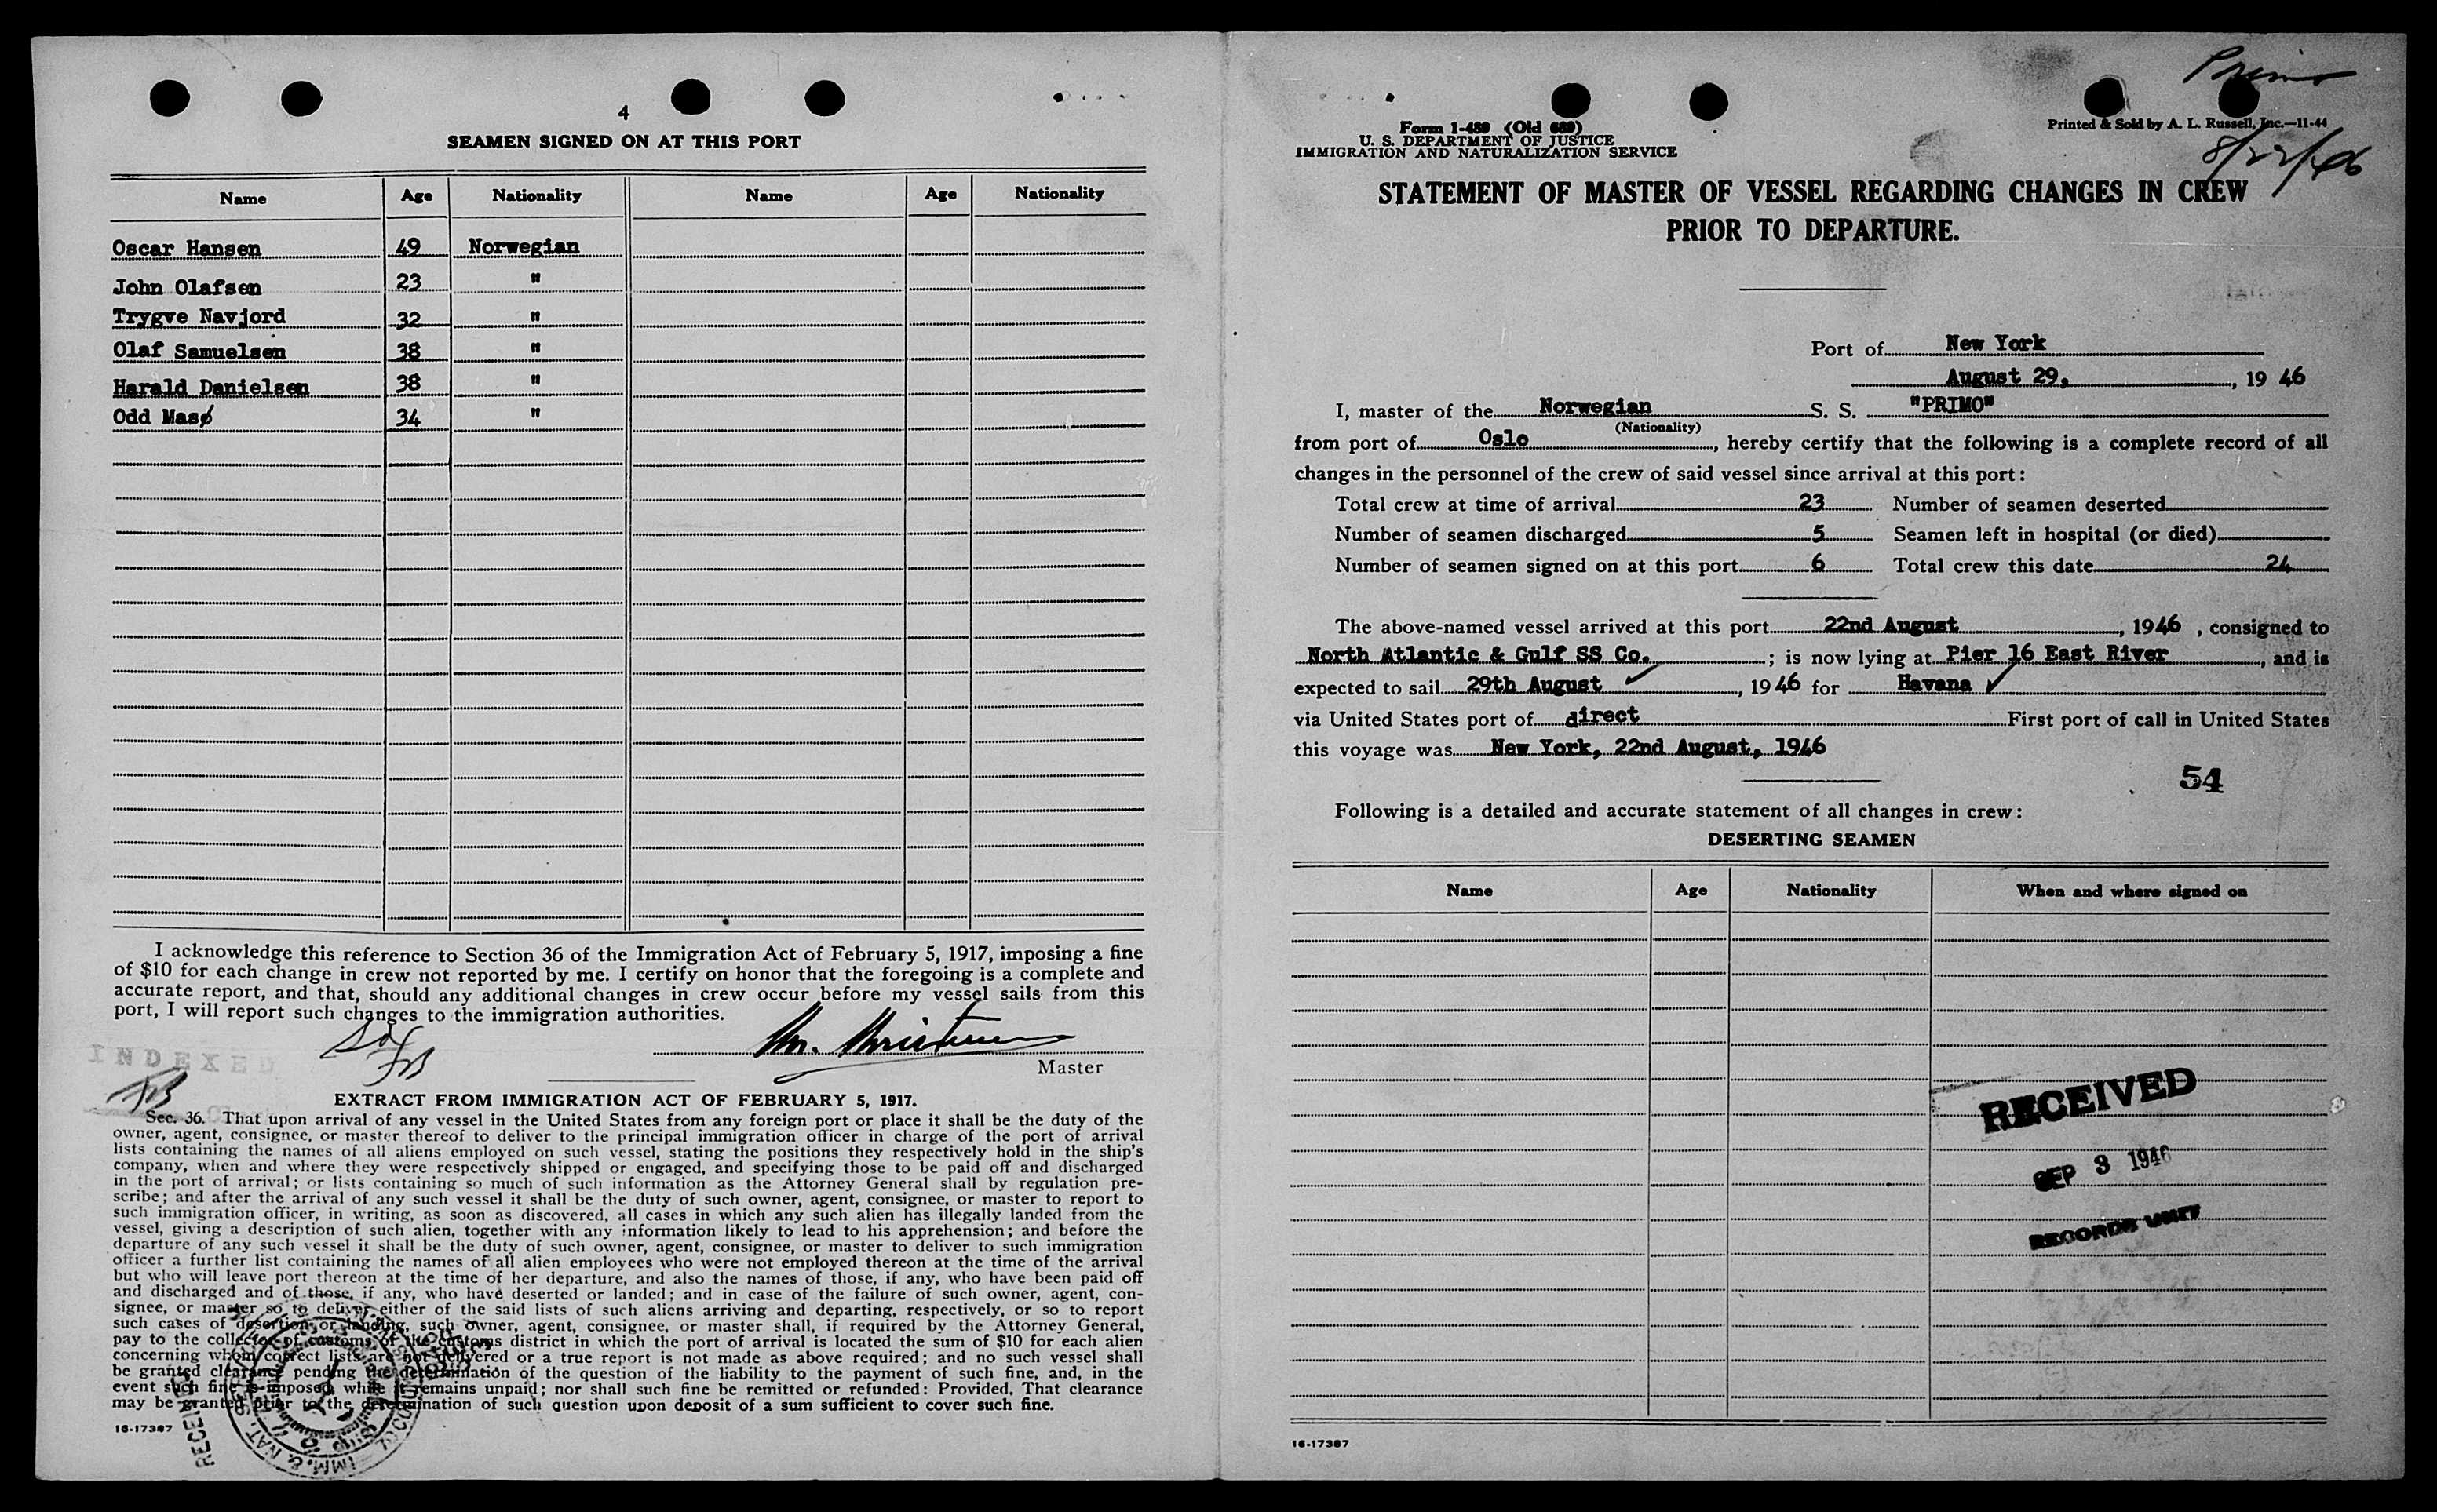 4
SEAMEN SIGNED ON AT THIS PORT
Name Age Nationality Name Age Nationality
Oscar Hansen 49 Norwegian
John Olafsen 23 "
Trygve Navjord 32 "
Olaf Samuelsen 38 "
Harald Danielsen 38 "
Odd Masø 34 "
I acknowledge this reference to Section 36 of the Immigration Act of February 5, 1917, imposing a fine
of $10 for each change in crew not reported by me. I certify on honor that the foregoing is a complete and
accurate report, and that, should any additional changes in crew occur before my vessel sails from this
port, I will report such changes to the immigration authorities.
INDEXED
Master
EXTRACT FROM IMMIGRATION ACT OF FEBRUARY 5, 1917.
Sec. 36. That upon arrival of any vessel in the United States from any foreign port or place it shall be the duty of the
owner, agent, consignee, or master thereof to deliver to the principal immigration officer in charge of the port of arrival
lists containing the names of all aliens employed on such vessel, stating the positions they respectively hold in the ship's
company, when and where they were respectively shipped or engaged, and specifying those to be paid off and discharged
in the port of arrival; or lists containing so much of such information as the Attorney General shall by regulation pre-
scribe; and after the arrival of any such vessel it shall be the duty of such owner, agent, consignee, or master to report to
such immigration officer, in writing, as soon as discovered, all cases in which any such alien has illegally landed from the
vessel, giving a description of such alien, together with any information likely to lead to his apprehension; and before the
departure of any such vessel it shall be the duty of such owner, agent, consignee, or master to deliver to such immigration
officer a further list containing the names of all alien employees who were not employed thereon at the time of the arrival
but who will leave port thereon at the time of her departure, and also the names of those, if any, who have been paid off
and discharged and of those, if any, who have deserted or landed; and in case of the failure of such owner, agent, con-
signee, or master so to deliver either of the said lists of such aliens arriving and departing, respectively, or so to report
such cases of desertion or landing, such owner, agent, consignee, or master shall, if required by the Attorney General,
pay to the collector of customs of the customs district in which the port of arrival is located the sum of $10 for each alien
concerning whom correct lists are not delivered or a true report is not made as above required; and no such vessel shall
be granted clearance pending the determination of the question of the liability to the payment of such fine, and, in the
event such fine is imposed, while it remains unpaid; nor shall such fine be remitted or refunded: Provided, That clearance
may be granted prior to the determination of such question upon deposit of a sum sufficient to cover such fine.
16-17387
RECEIVED
IMM. & NAT.
Primo
8/22/46
Form I-489 (Old 689)
U. S. DEPARTMENT OF JUSTICE
IMMIGRATION AND NATURALIZATION SERVICE
Printed & Sold by A. L. Russell, Inc.—11-44
STATEMENT OF MASTER OF VESSEL REGARDING CHANGES IN CREW
PRIOR TO DEPARTURE.
Port of New York
August 29, , 19 46
I, master of the Norwegian S. S. "PRIMO"
(Nationality)
from port of Oslo , hereby certify that the following is a complete record of all
changes in the personnel of the crew of said vessel since arrival at this port:
Total crew at time of arrival 23 Number of seamen deserted
Number of seamen discharged 5 Seamen left in hospital (or died)
Number of seamen signed on at this port 6 Total crew this date 24
The above-named vessel arrived at this port 22nd August , 1946 , consigned to
North Atlantic & Gulf SS Co. ; is now lying at Pier 16 East River , and is
expected to sail 29th August ✓ , 1946 for Havana ✓
via United States port of direct First port of call in United States
this voyage was New York, 22nd August, 1946
54
Following is a detailed and accurate statement of all changes in crew:
DESERTING SEAMEN
Name Age Nationality When and where signed on
RECEIVED
SEP 3 1946
RECORDS UNIT
16-17387